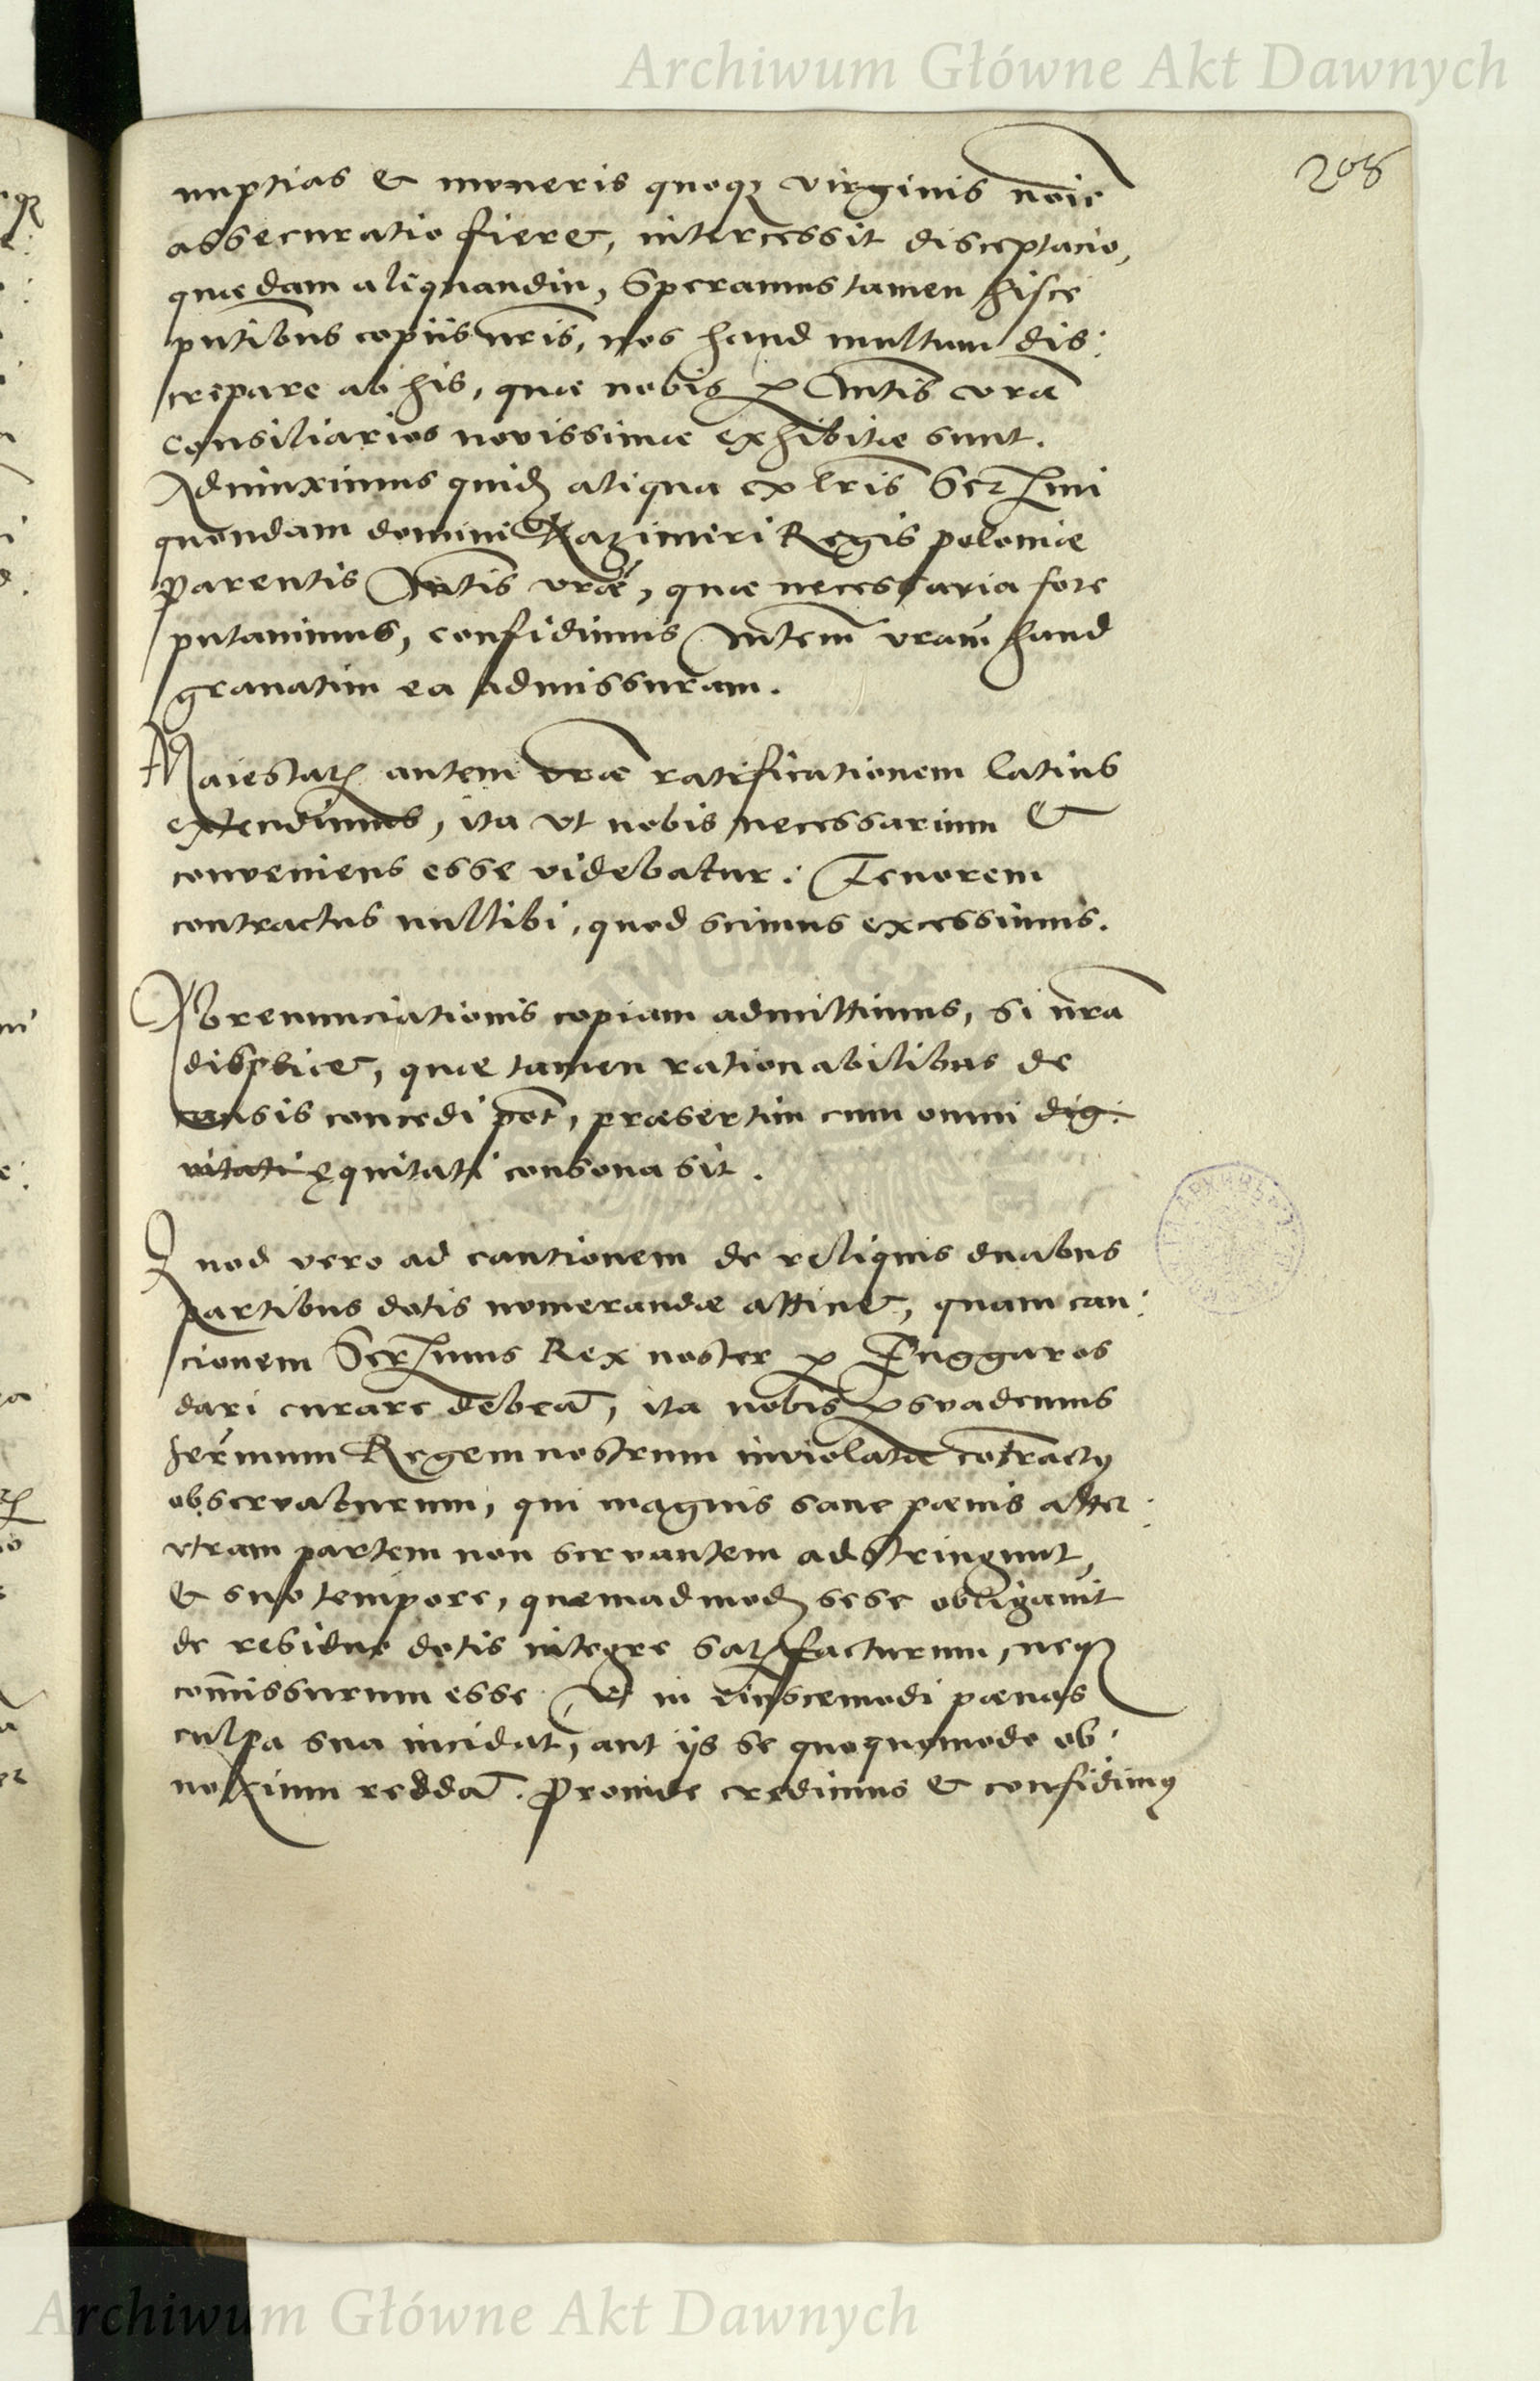 Archiwum Główne Akt Dawnych
208
nuptias & muneris quoq virginis noīe
assecuratio fieret, intercessit disceptacio,
quædam aliquandiu, Speramus tamen hisce
pntibus copiis nris, nos haud multum dis:
crepare ab his, quæ nobis p Mtis vræ
consiliarios novissimæ exhibitæ sunt.
Adiunximus quidē aliqua ex lris Serᵐⁱ
quondam domini Kazimiri Regis poloniæ
parentis Mtis vræ, quæ necessaria fore
putavimus, confidimus Mtem vram haud
gravatim ea admissuram.
Maiestatis autem vræ ratificationem latius
extendimus, ita vt nobis necessarium &
conveniens esse videbatur: Tenorem
contractus nullibi, quod scimus excessimus.
Abrenunciationis copiam admittimus, si nra
displicet, quæ tamen rationabilibus de
causis concedi pot, præsertim cum omni dig:
nitati ęquitati consona sit.
Quod vero ad cautionem de reliquis duabus
partibus dotis numerandæ attinet, quam cau:
cionem Serᵐᵘˢ Rex noster p Fuggaros
dari curare debeat, ita nobis psvademus
serᵐum Regem nostrum inviolate cotractus
observaturum, qui magnis sane pænis alter:
vtram partem non servantem adstringunt,
& suo tempore, quemadmodū sese obligavit
de residuo dotis integre satisfacturum, neq
comissurum esse, vt in eiuscemodi pænas
culpa sua incidat, aut ijs se quoquomodo ob:
noxium reddat. Proinde credimus & confidimus
Archiwum Główne Akt Dawnych